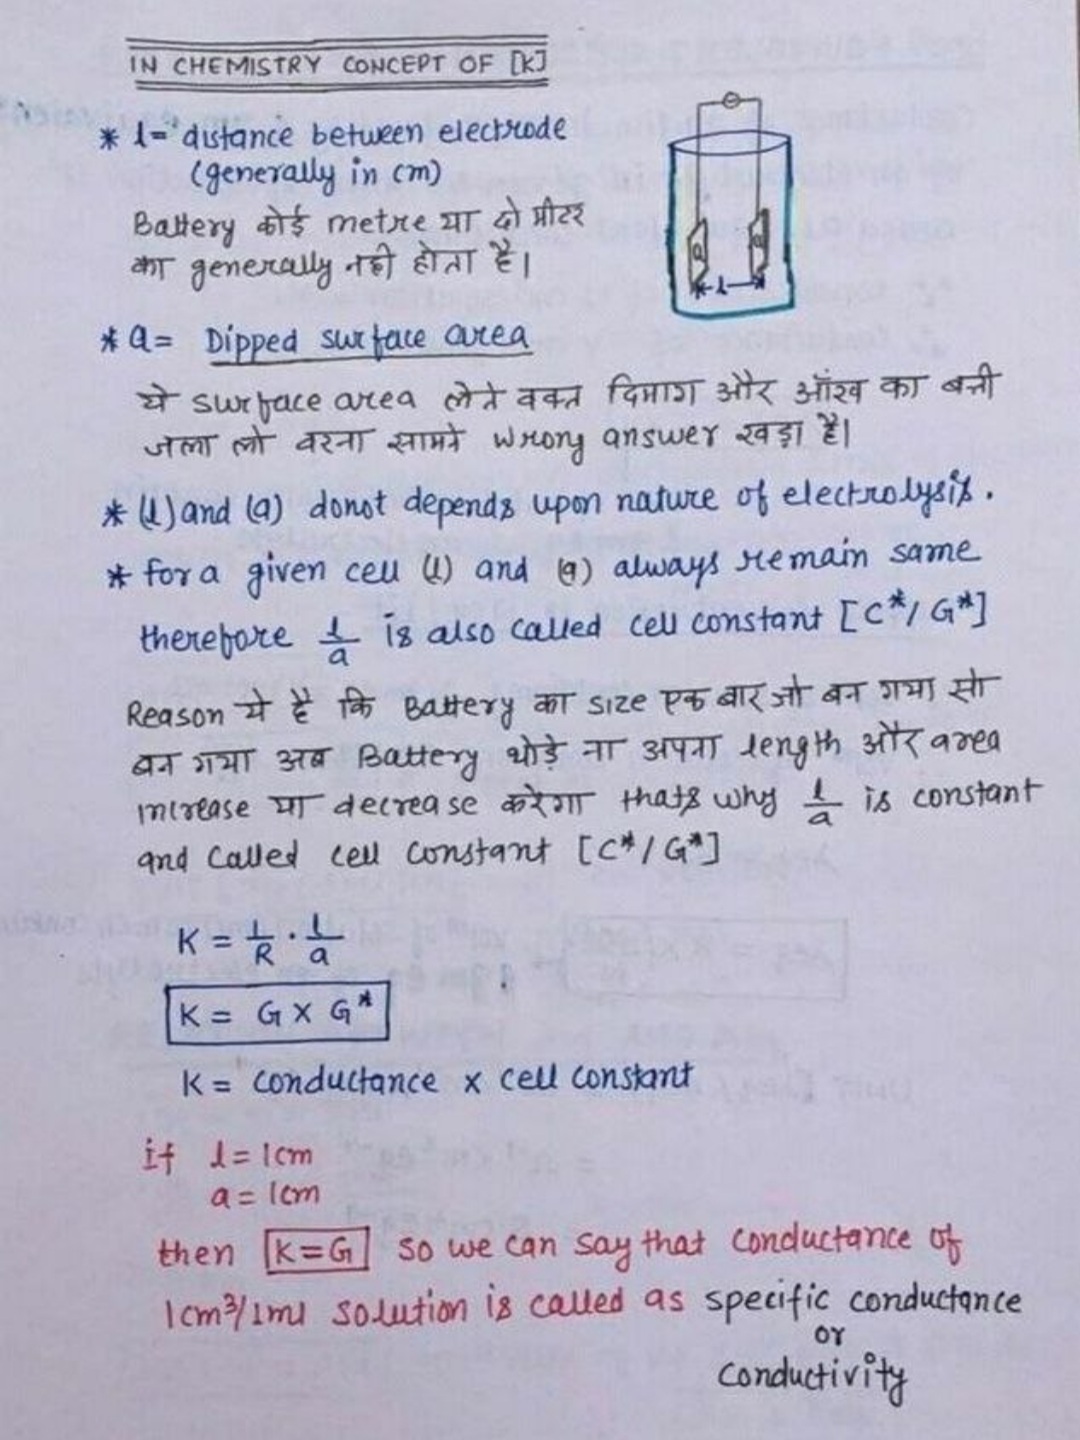 IN CHEMISTRY CONCEPT OF [K]
* l = distance between electrode
(generally in cm)
Battery कोई metre या दो मीटर
का generally नही होता है।
a a
* l *
* a = Dipped surface area
ये surface area लेते वक्त दिमाग और आँख का बत्ती
जला लो वरना सामने wrong answer खड़ा है।
* (l) and (a) donot depends upon nature of electrolysis.
* for a given cell (l) and (a) always remain same
therefore l/a is also called cell constant [C*/G*]
Reason ये है कि Battery का size एक बार जो बन गया सो
बन गया अब Battery थोड़े ना अपना length और area
increase या decrease करेगा thats why l/a is constant
and called cell constant [C*/G*]
K = 1/R · l/a
K = G X G*
K = conductance x cell constant
if l = 1cm
a = 1cm
then K=G so we can say that conductance of
1cm³/1ml solution is called as specific conductance
or
conductivity